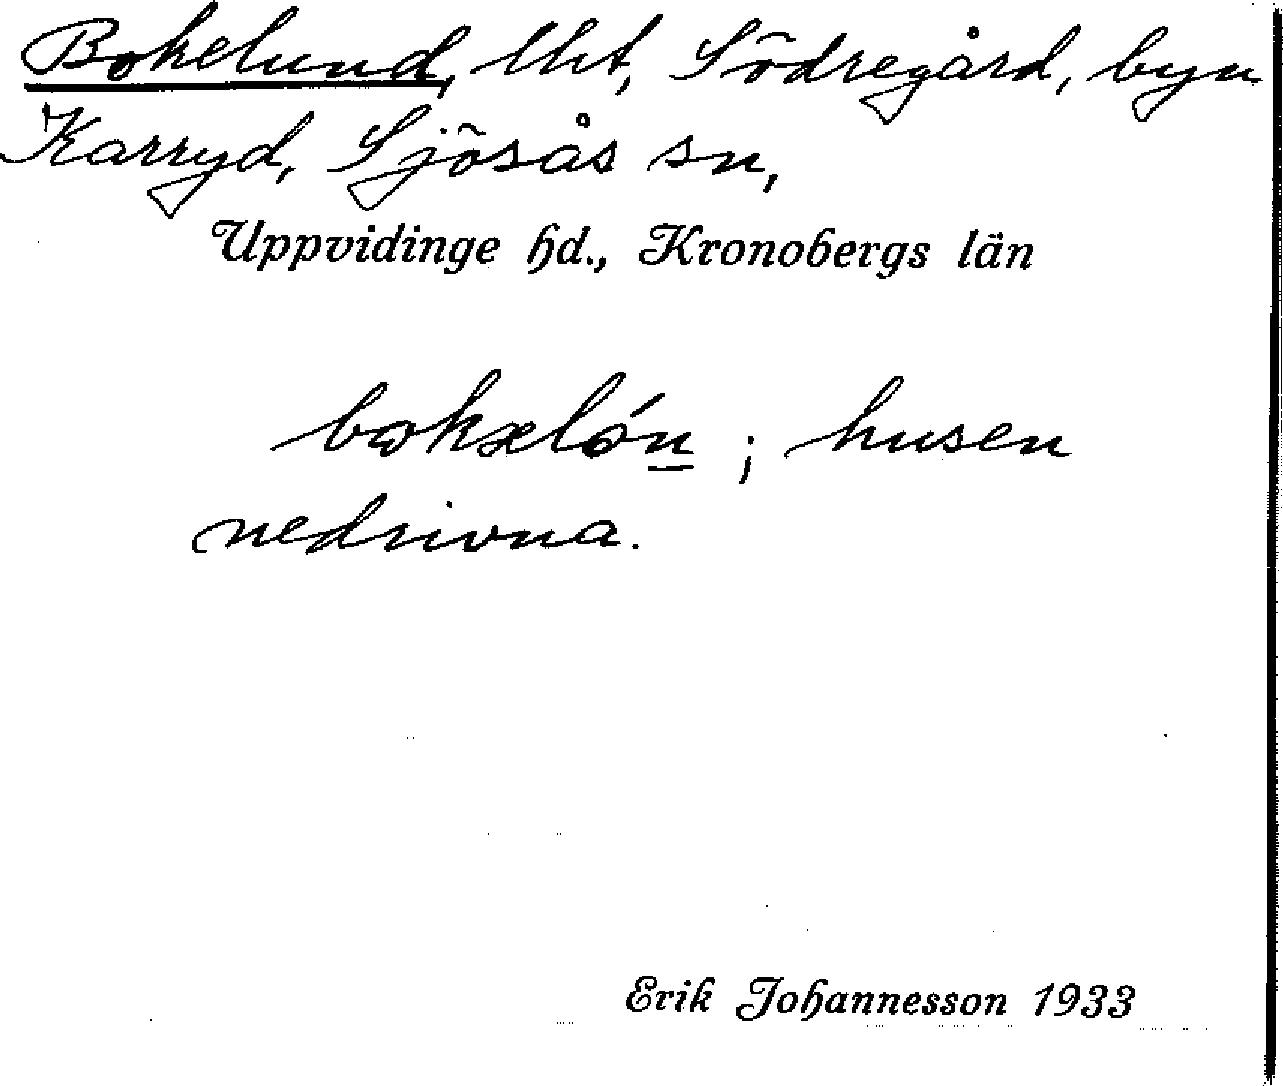 Bokelund, lht, Södregård, byn
Karryd, Sjösås sn,
Uppvidinge hd., Kronobergs län
bokæló̱n ; husen
nedrivna.
Erik Johannesson 1933